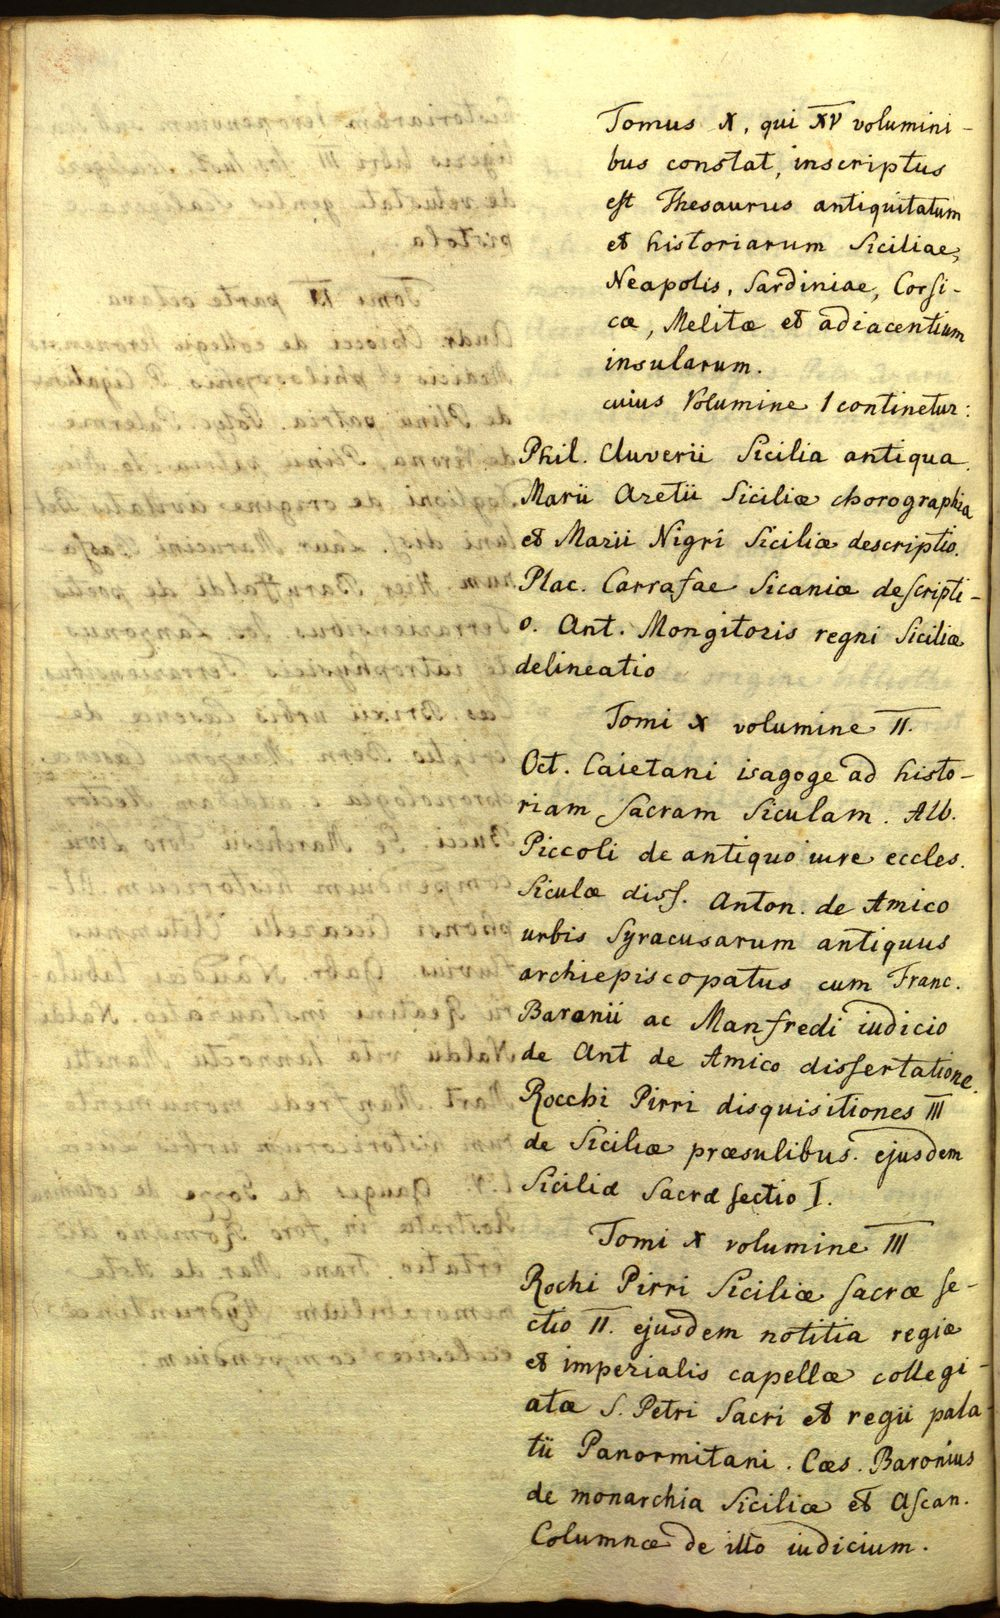 Tomus X, qui XV volumini-
bus constat, inscriptus
est Thesaurus antiquitatum
et historiarum Siciliae,
Neapolis, Sardiniae, Corsi-
cæ, Melitæ et adiacentium
insularum.
cuius Volumine I continetur:
Phil. Cluverii Sicilia antiqua.
Marii Aretii Siciliæ chorographia
et Marii Nigri Siciliæ descriptio.
Plac. Carrafae Sicaniæ descripti-
o. Ant. Mongitoris regni Siciliæ
delineatio
Tomi X volumine II.
Oct. Caietani isagoge ad histo-
riam sacram Siculam. Alb.
Piccoli de antiquo iure eccles.
Siculæ diss. Anton. de Amico
urbis Syracusarum antiquus
archiepiscopatus cum Franc.
Baronii ac Manfredi iudicio
de Ant de Amico dissertatione.
Rocchi Pirri disquisitiones III
de Siciliæ præsulibus. ejusdem
Siciliæ Sacræ sectio I.
Tomi X volumine III
Rochi Pirri Siciliæ sacræ se-
ctio II. ejusdem notitia regiæ
et imperialis capellæ collegi-
atæ S. Petri Sacri et regii pala-
tii Panormitani. Cæs. Baronius
de monarchia Siciliæ et Ascan.
Columnæ de illo iudicium.